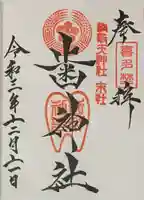 奉拝
喜多埜
綱敷天神社 末社
歯神社
令和二年十二月十一日